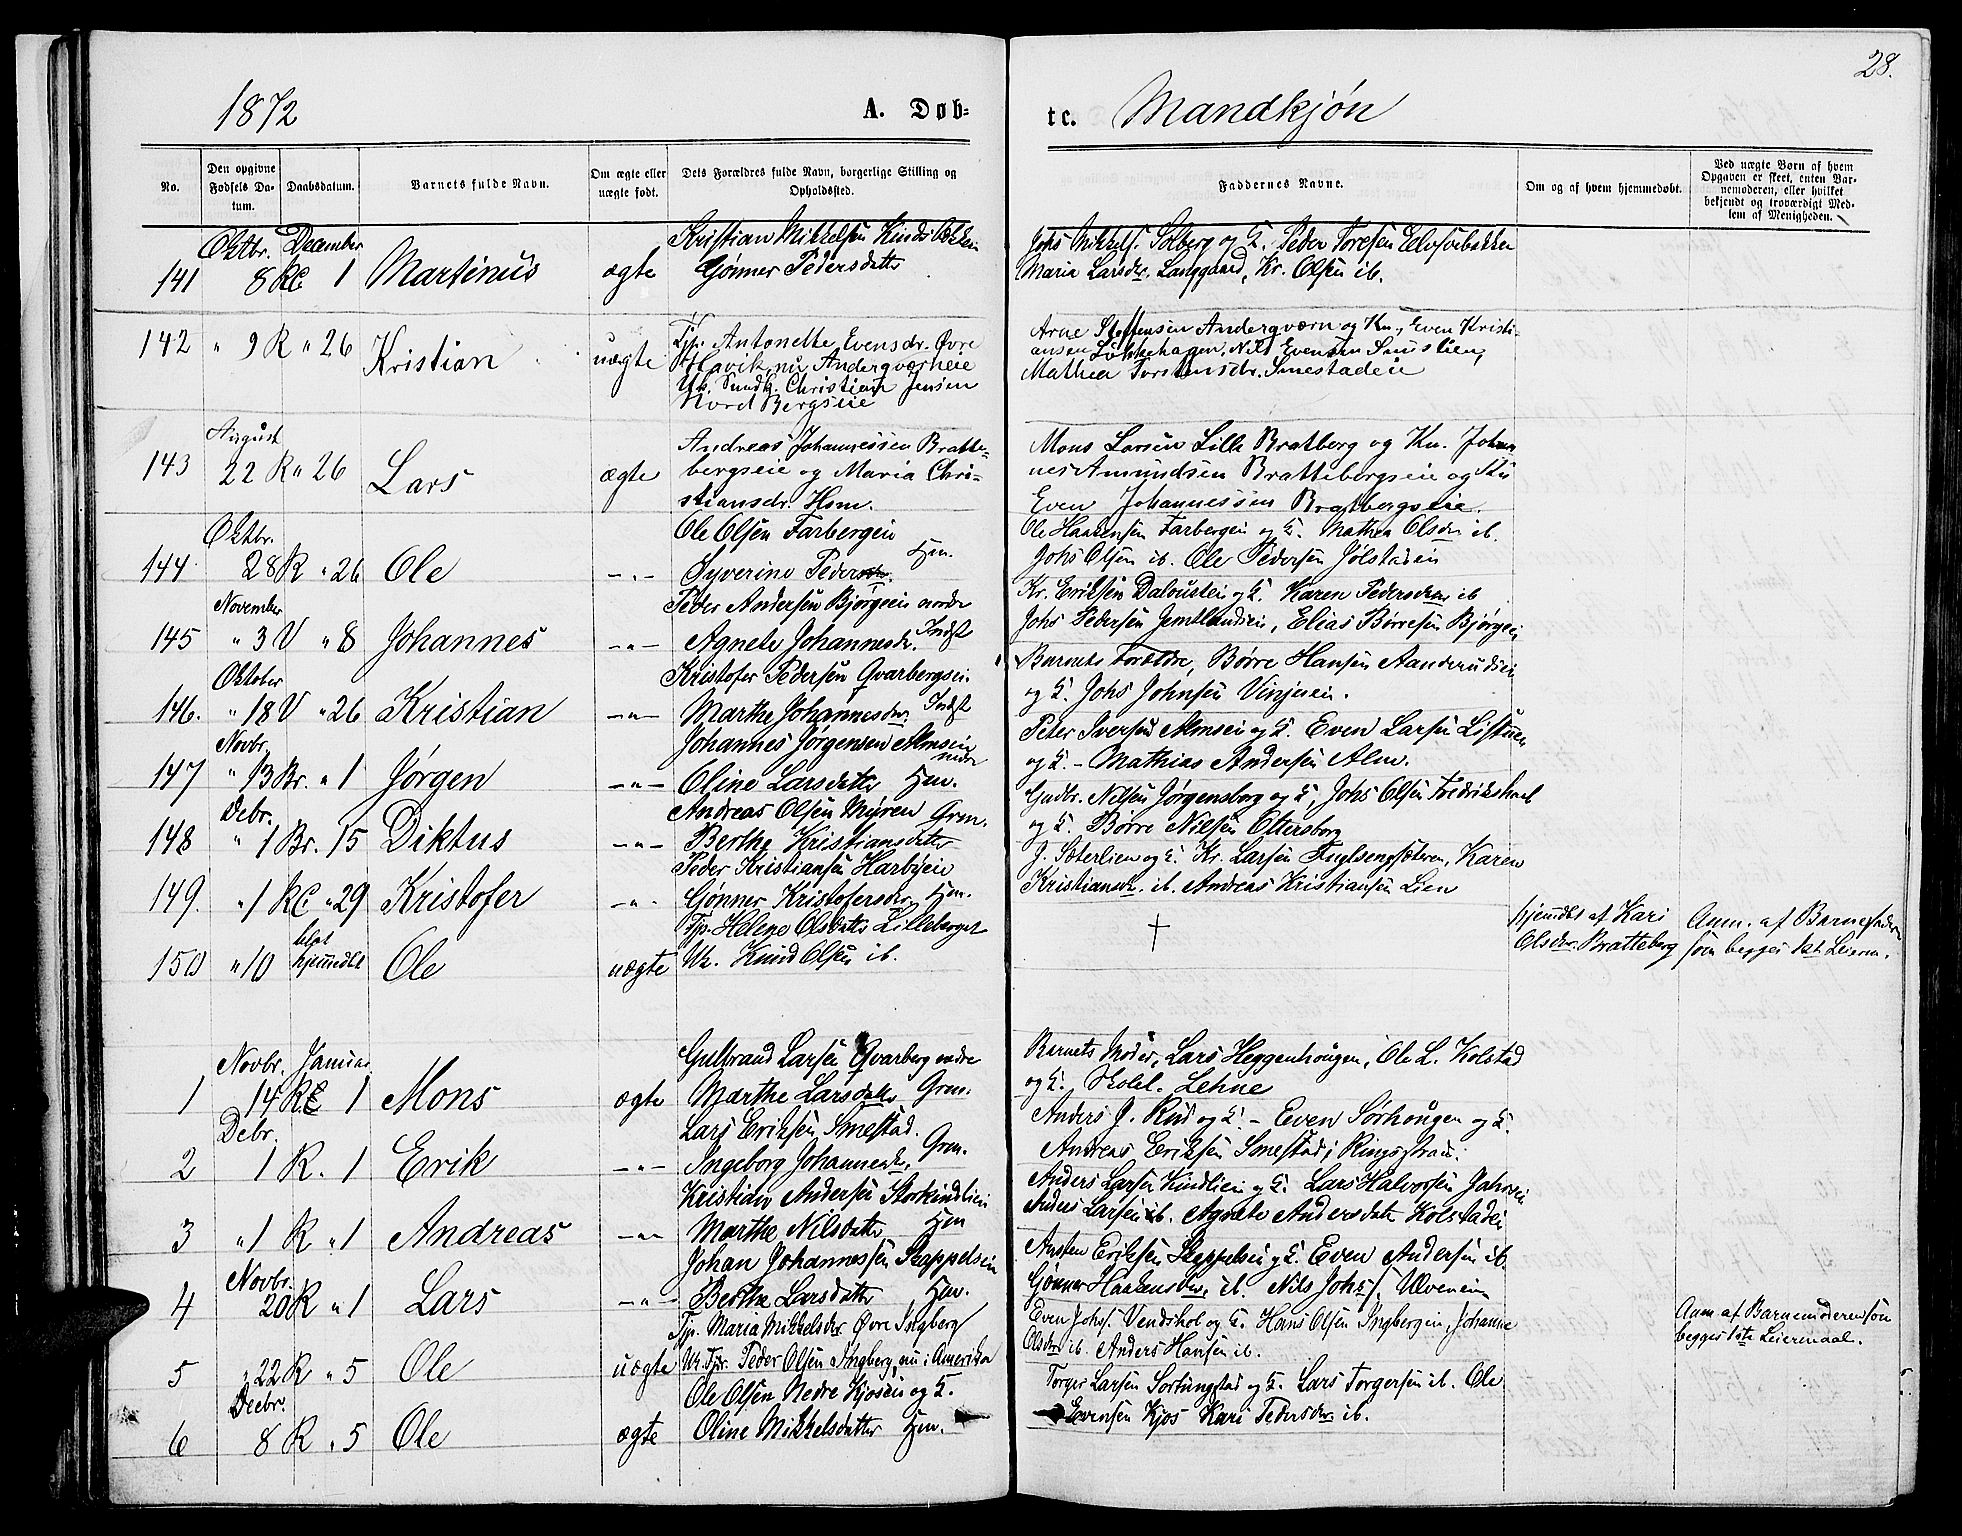 28.
1872 A. Døb-
te. Mandkjøn
No.
Den opgivne Fødsels Da-tum.
Daabsdatum.
Barnets fulde Navn.
Om ægte eller uægte født.
Dets Forældres fulde Navn, borgerlige Stilling og Opholdssted.
Faddernes Navne.
Om og af hvem hjemmedøbt.
Ved uægte Børn af hvem Opgaven er skeet, enten Bar-nemoderen, eller hvilket bekjendt og troværdigt Med-lem af Menigheden.
Oktbr. December Kristian Mikkelsen
141 8 1 Martinus ægte Gønner Pedersdatter
Johs Mikkels. Solberg og K. Peder Toresen
Maria Larsdr. Langgaard, Kr. Olsen ib.
142 " 9 R " 26 Kristian uægte
Tjp. Antonette Evensdr. Øvre
Havik, nu Anderqværneie
Uk. Christian Jensen
Nord Bergseie
Arne Steffensen Anderqværn og Kn., Even Kristi-
ansen Løkkehagen, Nils Evensen
Mathea Torstensdr. Smestadeie
August
143 22 R " 26 Lars ægte
Andreas Johannessen Bratte-
bergseie og Maria Chri-
stiansdr. Hsm.
Mons Larsen Lille Bratberg og Kn. Johan
nes Amundsen Brattebergseie og
Even Johannessen Bratbergseie.
Oktbr.
144 28 R " 26 Ole -"-
Ole Olsen Farbergeie
Syverine Pedersdr. Hsm.
Ole Haakensen Farbergeie og K. Mathea Olsdr. ib.
Johs Olsen ib. Ole Pedersen Jølstadeie
November
145 " 3 V " 8 Johannes -"-
Peder Andersen Bjørgeie nordre
Agnete Johannesdr. Indst
Kr. Eriksen og K. Karen Pedersdr. ib
Johs Pedersen Jemtlandseie, Elias Børresen Bjørgeie
Oktober
146. " 18 V " 26 Kristian -"-
Kristofer Pedersen Qvarbergseie
Marthe Johannesdr. Indst
Barnets Forældre, Børre Hansen Aanderudseie
og K. Johs Johnsen Vinjueie.
Novbr.
147 " 13 Br. " 1 Jørgen -"-
Johannes Jørgensen Almseie nedre
Oline Larsdatter Hsm.
Peter Iversen Almseie og K. Even Larsen Listuen
og K. - Mathias Andersen Alm.
Debr.
148 " 1 Br. 15 Diktus -"-
Andreas Olsen Myren Grm.
Berthe Kristiansdatter
Gudbr. Nilsen Jørgensborg og K, Johs Olsen
og K. Børre Nilsen Ottersborg
149. " 1 " 29 Kristofer -"-
Peder Kristiansen Harbyeie
Gønner Kristofersdr. Hsm.
J. Sæterlien og K. Kr. Larsen Karen
Kristiansdr. ib. Andreas Kristiansen Lien
150 " 10 hjemdbt Ole uægte
Tjp. Helene Olsdatter Lilleberget
Uk. Knud Olsen ib.
†
hjemdbt af Kari
Olsdr. Bratteberg
Anm. af Barnefaderen
som begges 1ste Leierm.
Novbr. Januar
1 14 1 Mons ægte
Gulbrand Larsen Qvarberg nedre
Marthe Larsdatter Grm.
Barnets Moder, Lars Heggenhougen, Ole L. Kolstad
og K. Lehne
Debr.
2 1 R. 1 Erik -"-
Lars Eriksen Smestad.
Ingeborg Johannesdr. Grm.
Anders J. Rud og K. - Even Sørhougen og K.
Andreas Eriksen Smestad, Ringsstrand.
3 " 1 R " 1 Andreas -"-
Kristian Andersen Storkindlien
Marthe Nilsdatter Hsm
Anders Larsen Kindlien og K. Lars Halvorsen
Anders Larsen ib. Agnete Andersdatter Kolstadeie
Novbr.
4 20 R " 1 Lars -"-
Johan Johannessen Skappelseie
Berthe Larsdatter Hsm.
Austen Eriksen Skappelseie og K. Even Andersen ib.
Gønner Haakensdr. ib. Nils Johs. Ulveneie
5 " 22 R " 5 Ole uægte
Tjp. Maria Mikkelsdr Øvre Ingberg
Uk. Tjr. Peder Olsen Ingberg, nu i Amerika
Even Johs. Vendskol og K. Hans Olsen Ingbergeie, Johanne
Olsdr. ib. Anders Hansen ib.
Anm af Barnemoderen som
begges 1ste Leiermaal.
Decbr.
6 8 R " 5 Ole ægte
Ole Olsen Nedre Kjoseie og K.
Oline Mikkelsdatter Hsm.
Torger Larsen Sortungstad og K. Lars Torgersen ib. Ole
Evensen Kjos Kari Pedersdr ib.